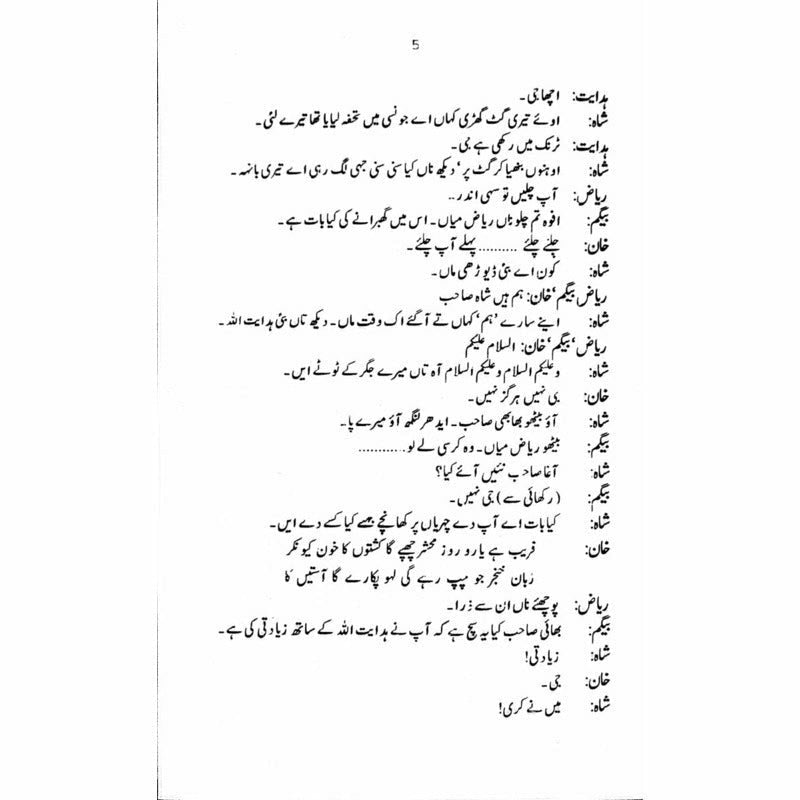 5
ہدایت: اچھا جی۔
شاہ: اوئے تیری گٹ گھڑی کہاں اے جونسی میں تحفہ لیایا تھا تیرے لئی۔
ہدایت: ٹرنک میں رکھی ہے جی۔
شاہ: اوہنوں بنھیا کر گٹ پر، دیکھ ناں کیا سنی سنی جہی لگ رہی اے تیری بانہہ۔
ریاض: آپ چلیں تو سہی اندر..
بیگم: افوہ تم چلو ناں ریاض میاں۔ اس میں گھبرانے کی کیا بات ہے۔
خان: چلئے چلئے .......... پہلے آپ چلئے۔
شاہ: کون اے بئی ڈیوڑھی ماں۔
ریاض بیگم، خان: ہم ہیں شاہ صاحب
شاہ: اینے سارے ’ہم‘ کہاں تے آ گئے اک وقت ماں۔ دیکھ تاں بئی ہدایت اللہ۔
ریاض، بیگم، خان: السلام علیکم
شاہ: وعلیکم السلام وعلیکم السلام آہ تاں میرے جگر کے ٹوٹے ایں۔
خان: جی نہیں ہرگز نہیں۔
شاہ: آؤ بیٹھو بھابھی صاحب۔ ایدھر لنگھ آؤ میرے پا۔
بیگم: بیٹھو ریاض میاں۔ وہ کرسی لے لو............
شاہ: آغا صاحب نئیں آئے کیا؟
بیگم: (رکھائی سے) جی نہیں۔
شاہ: کیا بات اے آپ دے چہریاں پر کھانچے جیسے کیا کسے دے ایں۔
خان: قریب ہے یارو روز محشر چھپے گا کشتوں کا خون کیونکر
زبان خنجر جو چپ رہے گی لہو پکارے گا آستیں کا
ریاض: پوچھئے ناں ان سے ذرا۔
بیگم: بھائی صاحب کیا یہ سچ ہے کہ آپ نے ہدایت اللہ کے ساتھ زیادتی کی ہے۔
شاہ: زیادتی!
خان: جی۔
شاہ: میں نے کری!